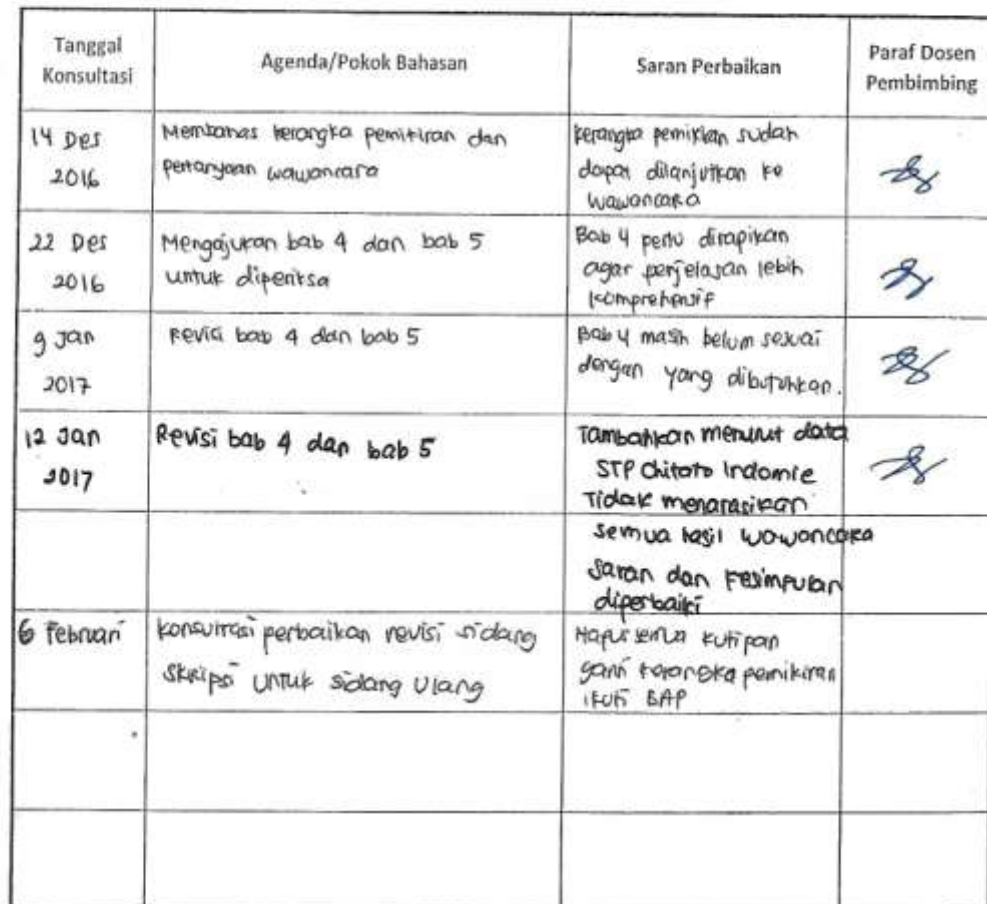 Tanggal
Konsultasi
Agenda/Pokok Bahasan
Saran Perbaikan
Paraf Dosen
Pembimbing
14 Des
2016
Membahas kerangka pemikiran dan
pertanyaan wawancara
kerangka pemikian sudah
dapat dilanjutkan ke
wawancara
22 Des
2016
Mengajukan bab 4 dan bab 5
untuk diperiksa
Bab 4 perlu dirapikan
agar penjelasan lebih
komprehensif
9 Jan
2017
Revisi bab 4 dan bab 5
Bab 4 masih belum sesuai
dengan yang dibutuhkan.
12 Jan
2017
Revisi bab 4 dan bab 5
Tambahkan menurut data
STP Chitato Indomie
Tidak menarasikan
semua hasil wawancara
saran dan kesimpulan
diperbaiki
6 Februari
konsultasi perbaikan revisi sidang
skripsi untuk sidang ulang
Hapus semua kutipan
ganti kerangka pemikiran
ikuti BAP